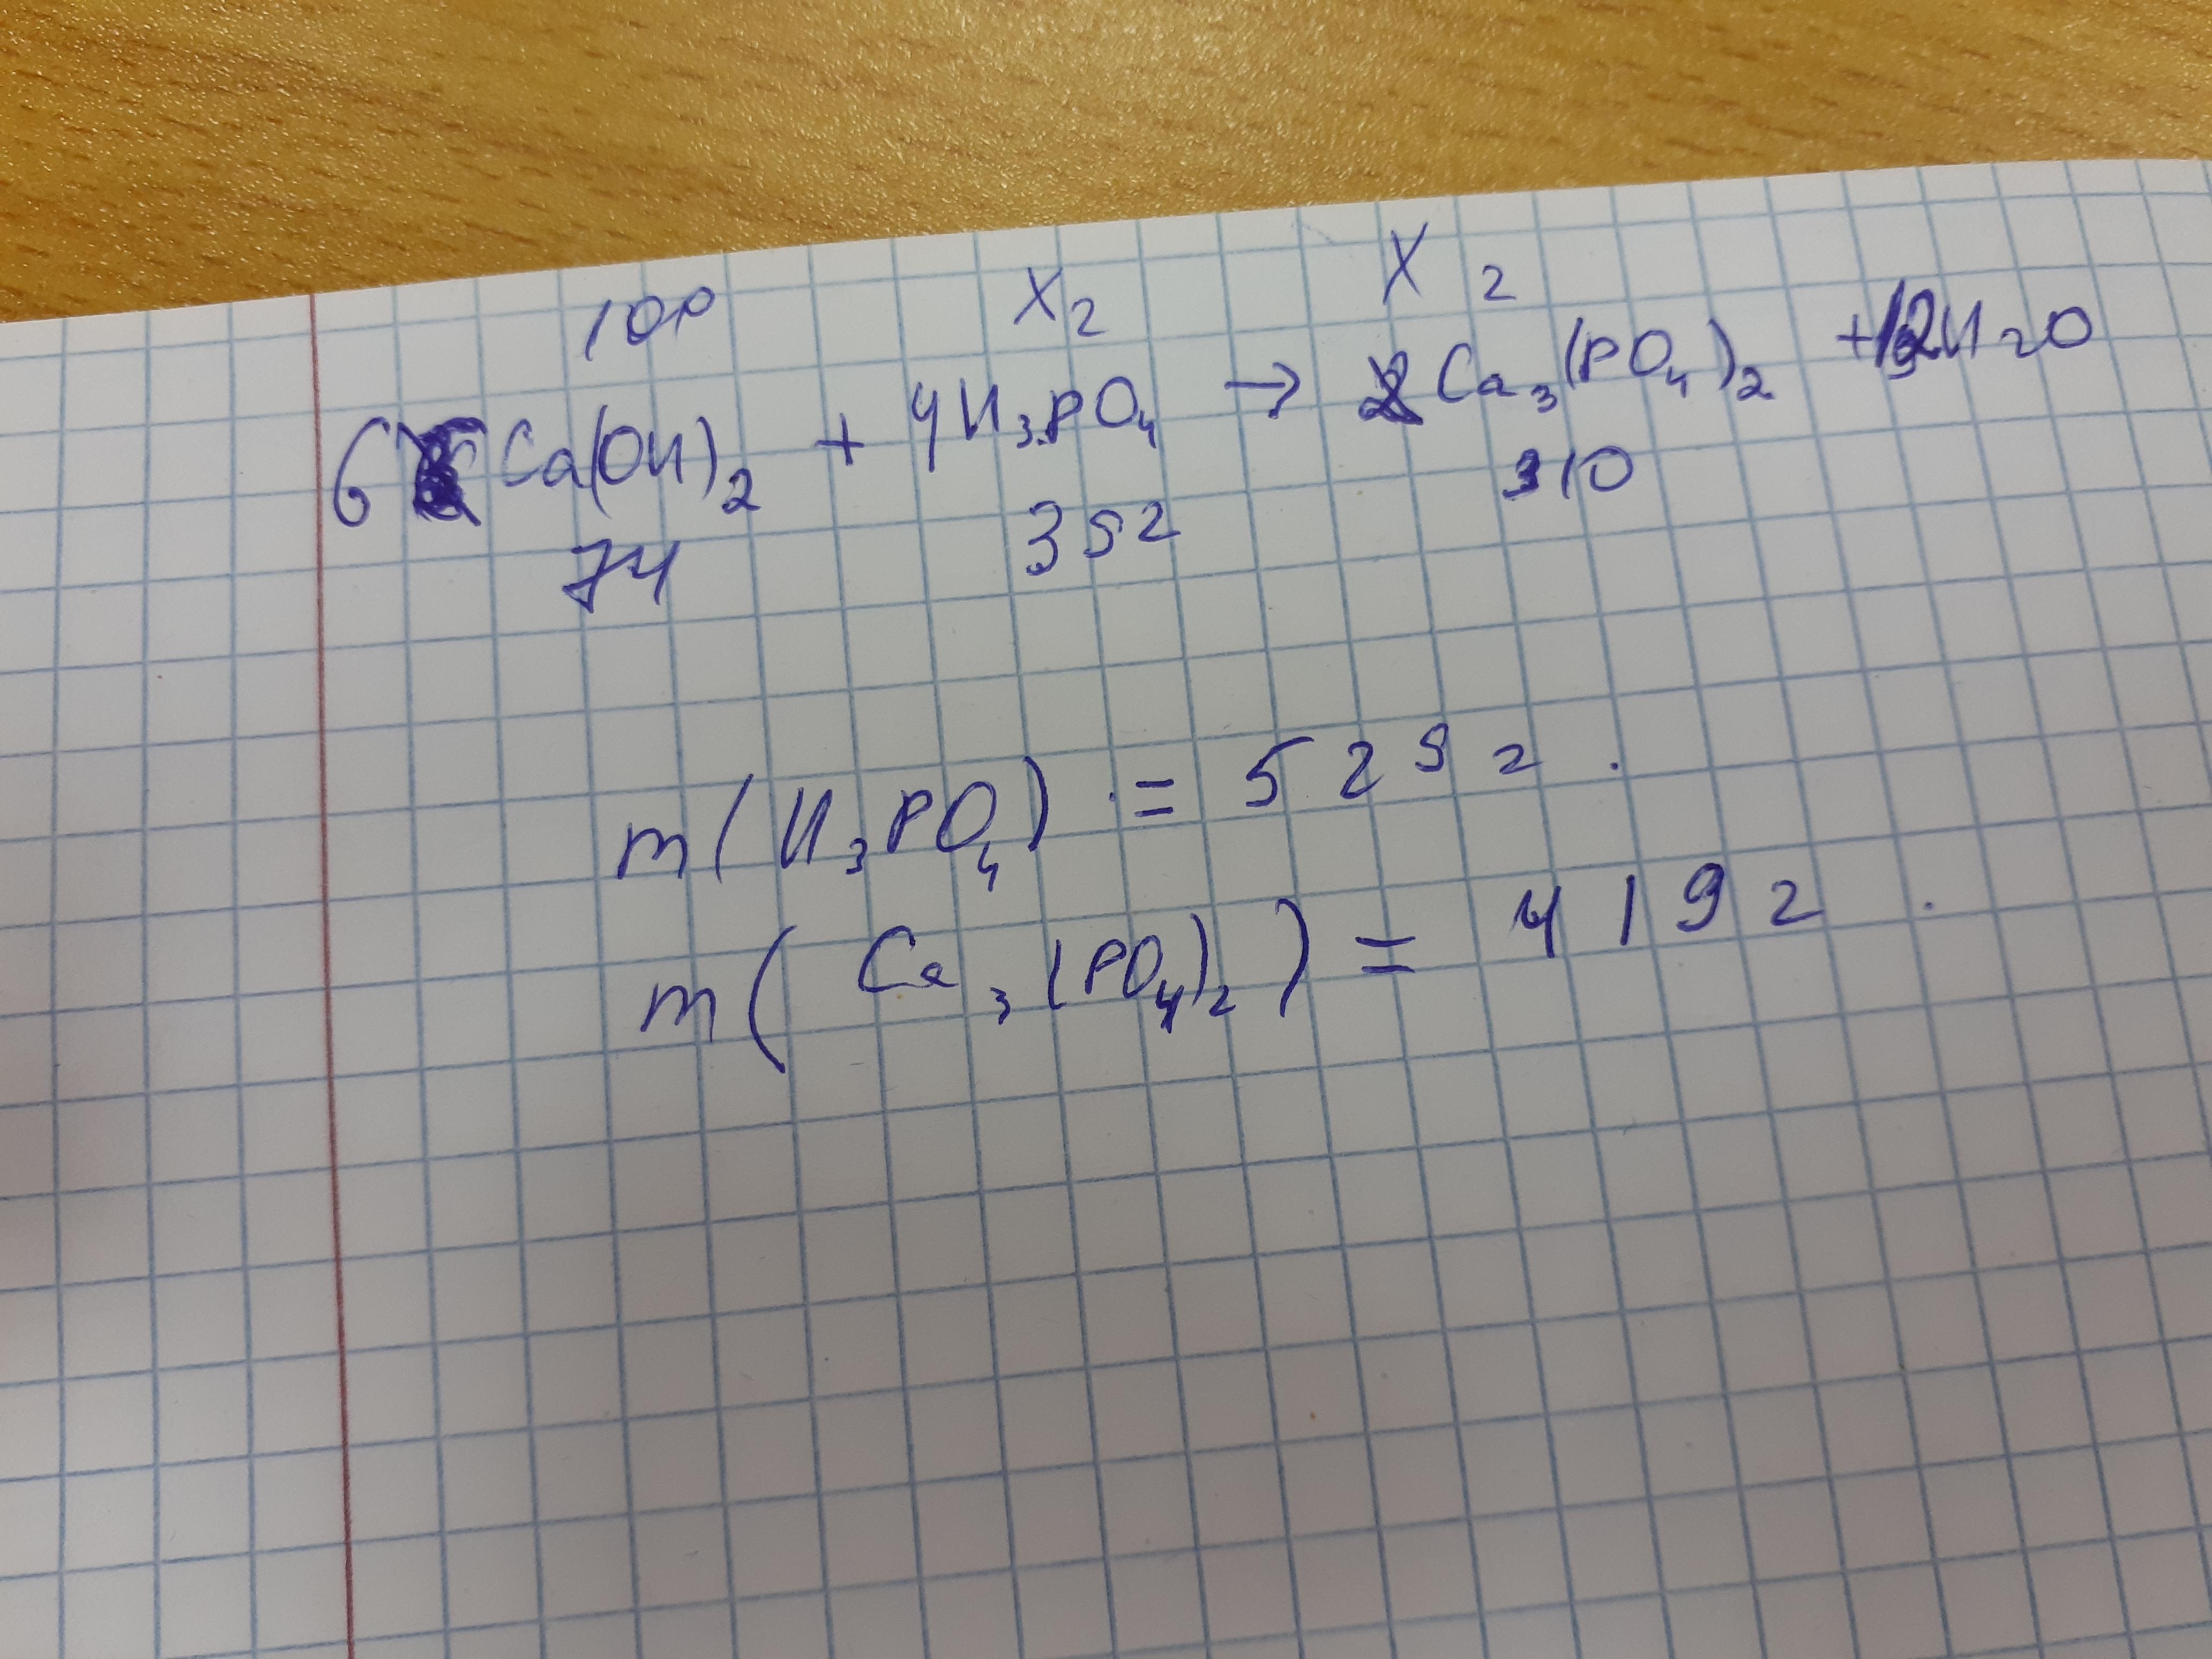 100 X г X г
6 Ca(OH)₂ + 4H₃PO₄ → 2Ca₃(PO₄)₂ + 12H₂O
74 392 310
m(H₃PO₄) = 529 г.
m(Ca₃(PO₄)₂) = 419 г.